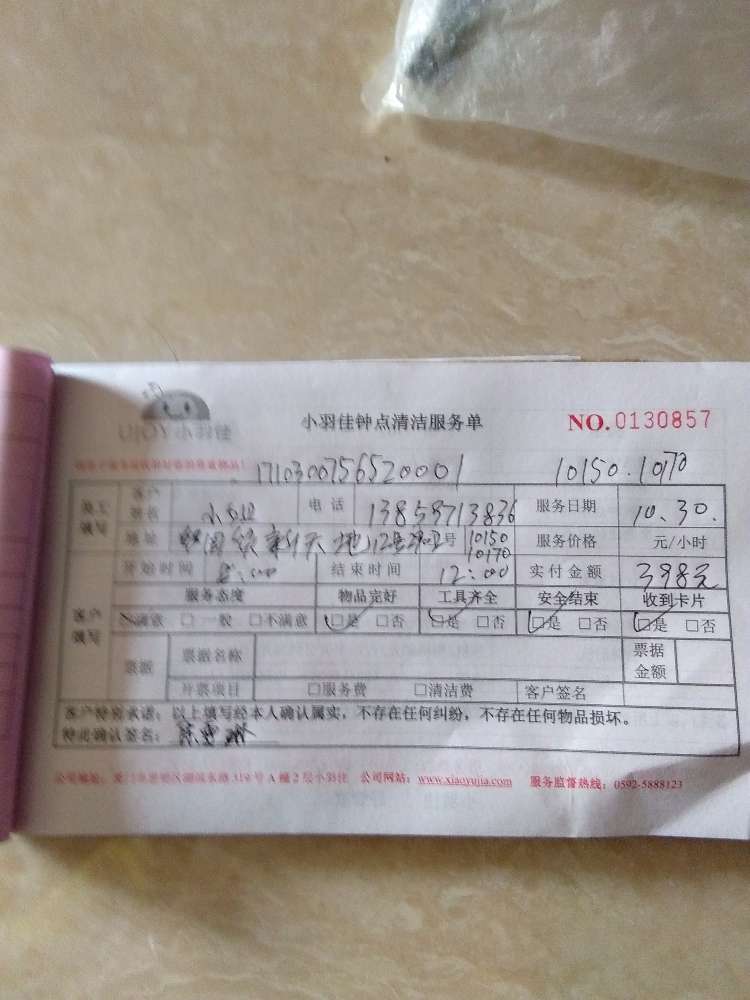 UJOY小羽佳
小羽佳钟点清洁服务单
NO.0130857
1710300756520001 10150.10170
员工填写 客户签名 电话 13859713836 服务日期 10.30.
地址 新天地 号 10150 10170 服务价格 元/小时
开始时间 8:00 结束时间 12:00 实付金额 398元
客户填写 服务态度 物品完好 工具齐全 安全结束 收到卡片
满意 □一般 □不满意 □是 □否 □是 □否 □是 □否 □是 □否
票据 票据名称 票据金额
开票项目 □服务费 □清洁费 客户签名
客户特别承诺：以上填写经本人确认属实，不存在任何纠纷，不存在任何物品损坏。
特此确认签名：
公司地址： 号A幢2层小羽佳 公司网站：www.xiaoyujia.com 服务监督热线：0592-5888123